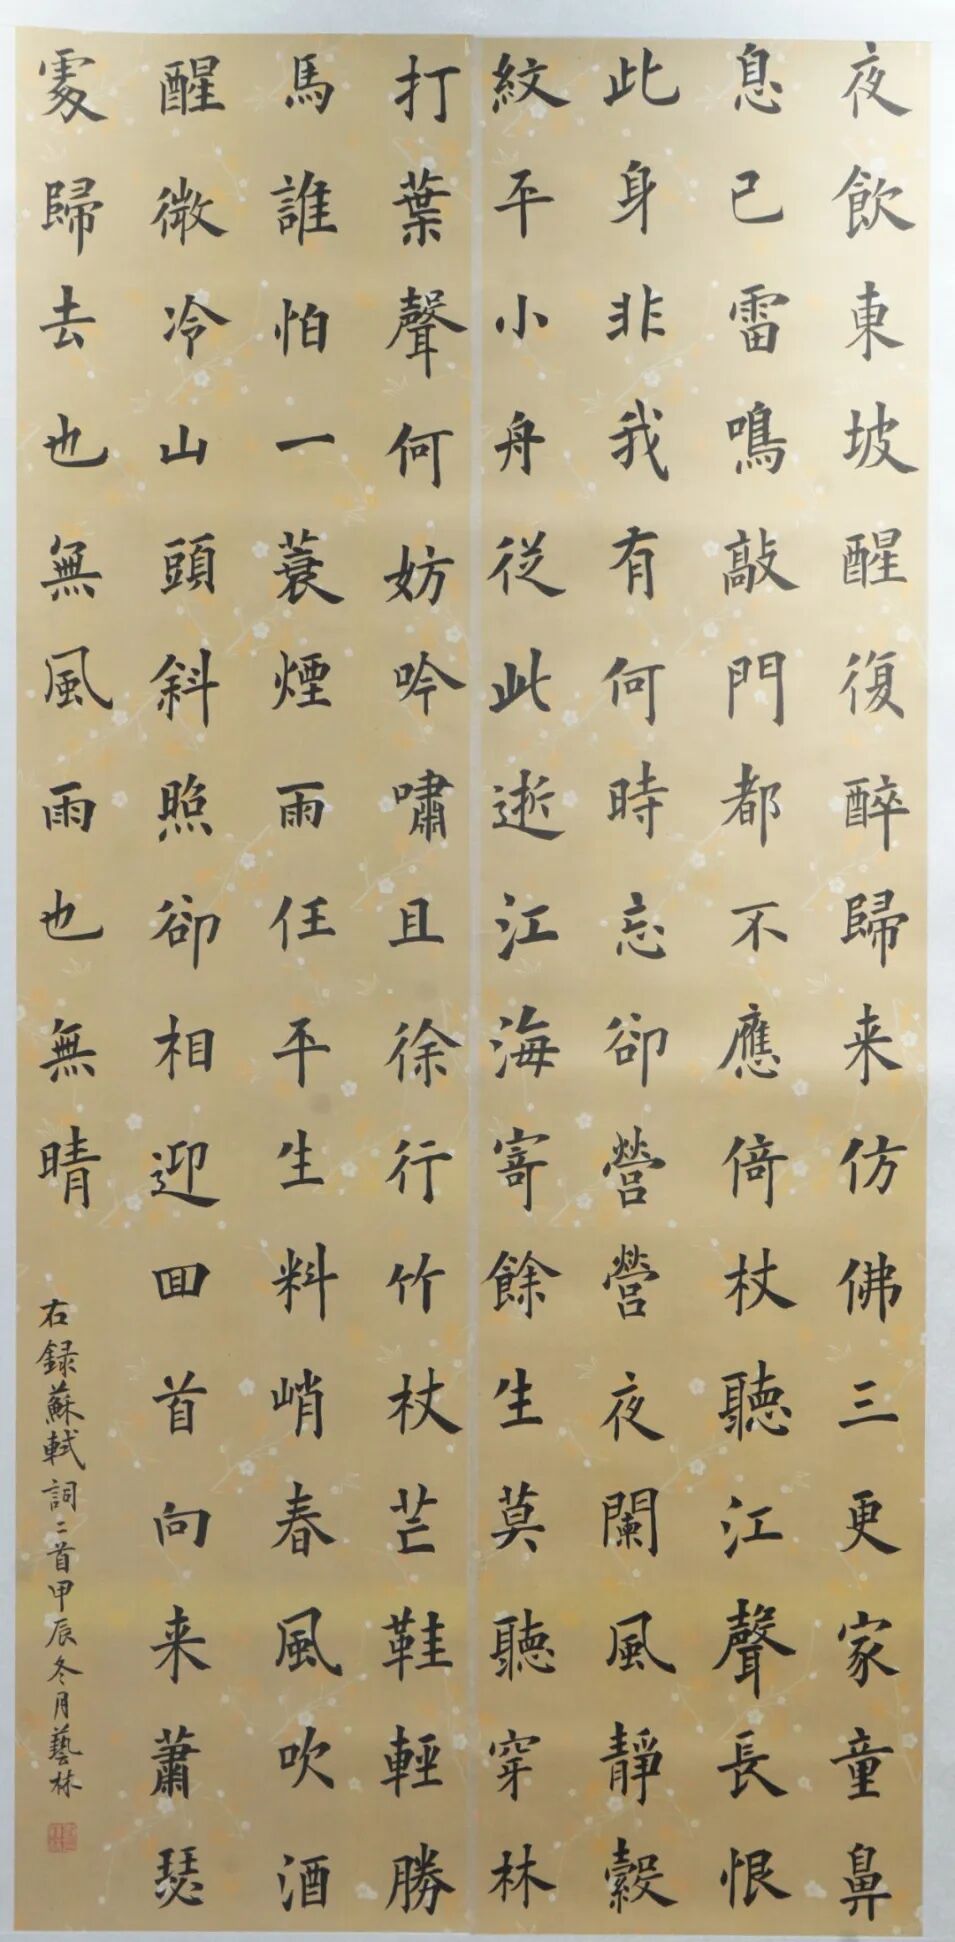 夜飲東坡醒復醉歸来仿佛三更家童鼻
息已雷鳴敲門都不應倚杖聽江聲長恨
此身非我有何時忘卻營營夜闌風靜縠
紋平小舟從此逝江海寄餘生莫聽穿林
打葉聲何妨吟嘯且徐行竹杖芒鞋輕勝
馬誰怕一蓑煙雨任平生料峭春風吹酒
醒微冷山頭斜照卻相迎回首向来蕭瑟
處歸去也無風雨也無晴
右録蘇軾詞二首甲辰冬月藝林